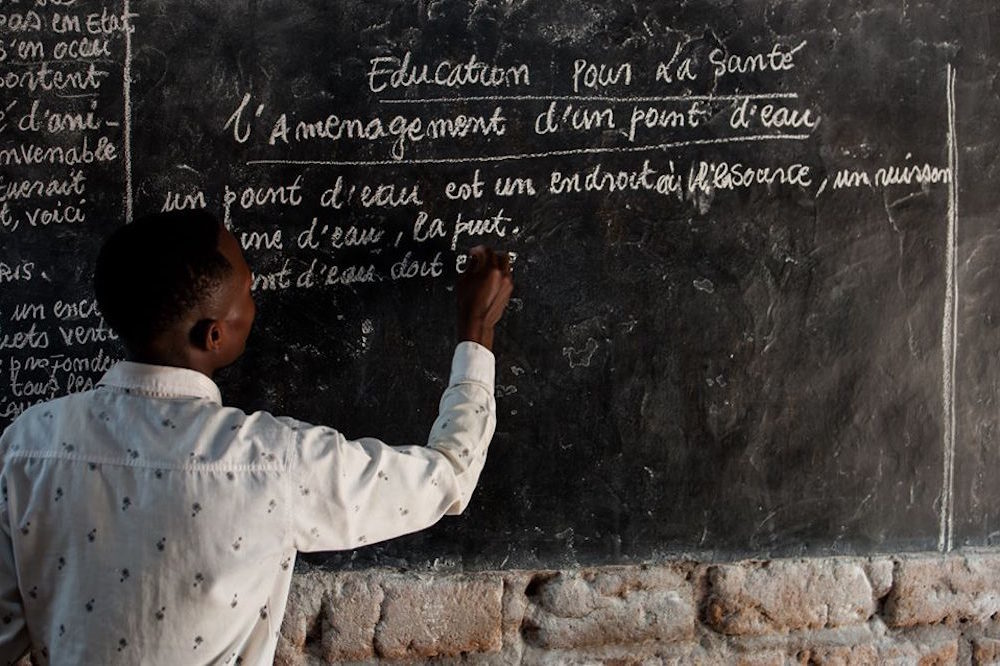 en Etat
s'en occu
portent
d'ani-
nvenable
uerait
t, voici
RIS.
un enc
ets vert
profonde
tous les
Education Pour La Santé
L'Amenagement d'un point d'eau
un point d'eau est un endroit où la source, un ruisson
une d'eau, la puit.
int d'eau doit e